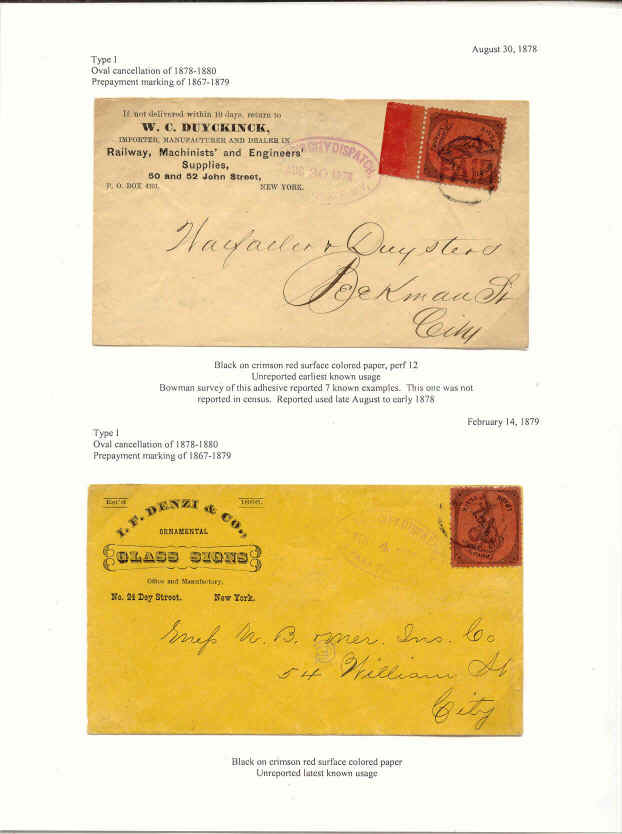 August 30, 1878
Type I
Oval cancellation of 1878-1880
Prepayment marking of 1867-1879
If not delivered within 10 days, return to
W. C. DUYCKINCK,
IMPORTER, MANUFACTURER AND DEALER IN
Railway, Machinists' and Engineers'
Supplies,
50 and 52 John Street,
P. O. BOX 4101. NEW YORK.
CITY DISPATCH
AUG 30 1878
& Duysters
Beekman St
City
Black on crimson red surface colored paper, perf 12
Unreported earliest known usage
Bowman survey of this adhesive reported 7 known examples. This one was not
reported in census. Reported used late August to early 1878
February 14, 1879
Type I
Oval cancellation of 1878-1880
Prepayment marking of 1867-1879
Est'd 1866.
I. F. DENZI & CO.,
ORNAMENTAL
GLASS SIGNS
Office and Manufactory,
No. 24 Dey Street. New York.
CITY DISPATCH
Ins. Co
54 William St
City
Black on crimson red surface colored paper
Unreported latest known usage